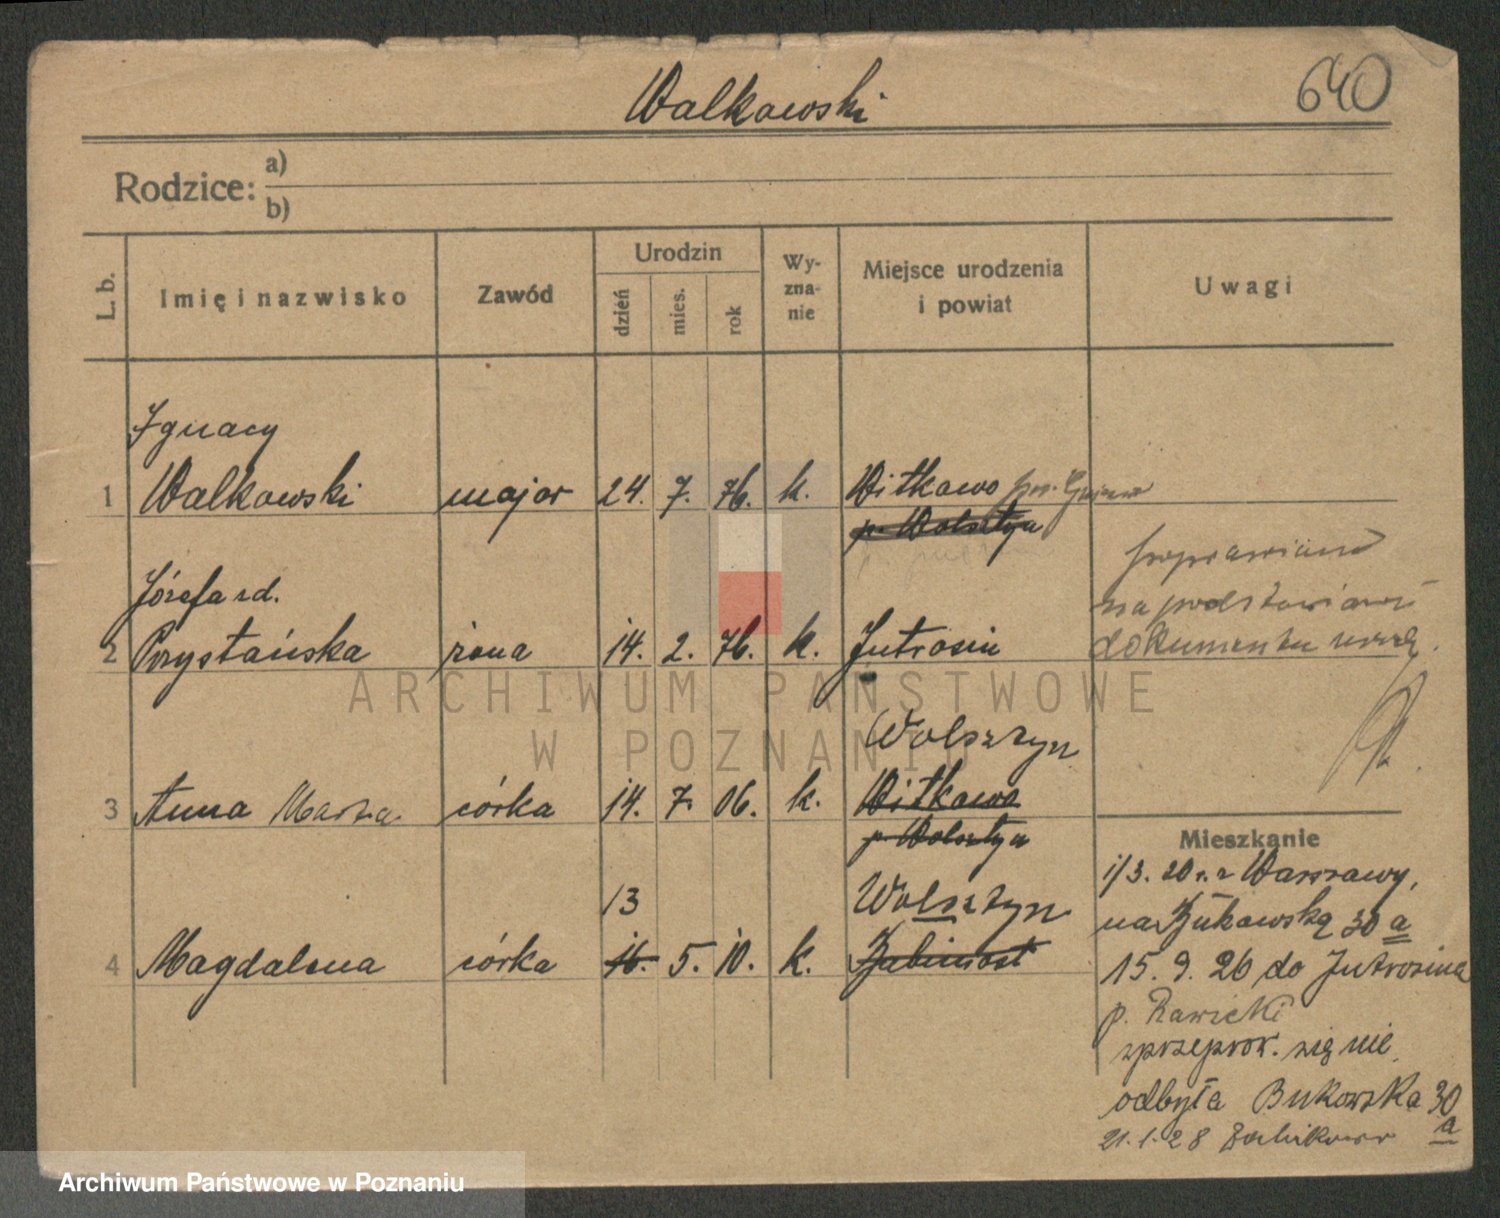 Walkowski
640
Rodzice: a)
b)
L. b.
Imię i nazwisko
Zawód
Urodzin
dzień
mies.
rok
Wy-
zna-
nie
Miejsce urodzenia
i powiat
Uwagi
Ignacy
1 Walkowski major 24. 7. 76. k. Witkowo
p. Wolsztyn
poprawiono
na podstawie
dokumentu
Józefa zd.
2 Przystańska żona 14. 2. 76. k. Jutrosin
Wolsztyn
3 Anna Marta córka 14. 7. 06. k. Witkowo
p. Wolsztyn
13 Wolsztyn
4 Magdalena córka 16. 5. 10. k. Zabimost
Mieszkanie
1/3. 20 r. z Warszawy,
na Bukowską 30 a
15. 9. 26 do Jutrosina
p. Rawicki
przeprow. się nie
odbyła Bukowska 30
a
21. 1. 28 Żabikowo
ARCHIWUM PAŃSTWOWE
W POZNANIU
Archiwum Państwowe w Poznaniu